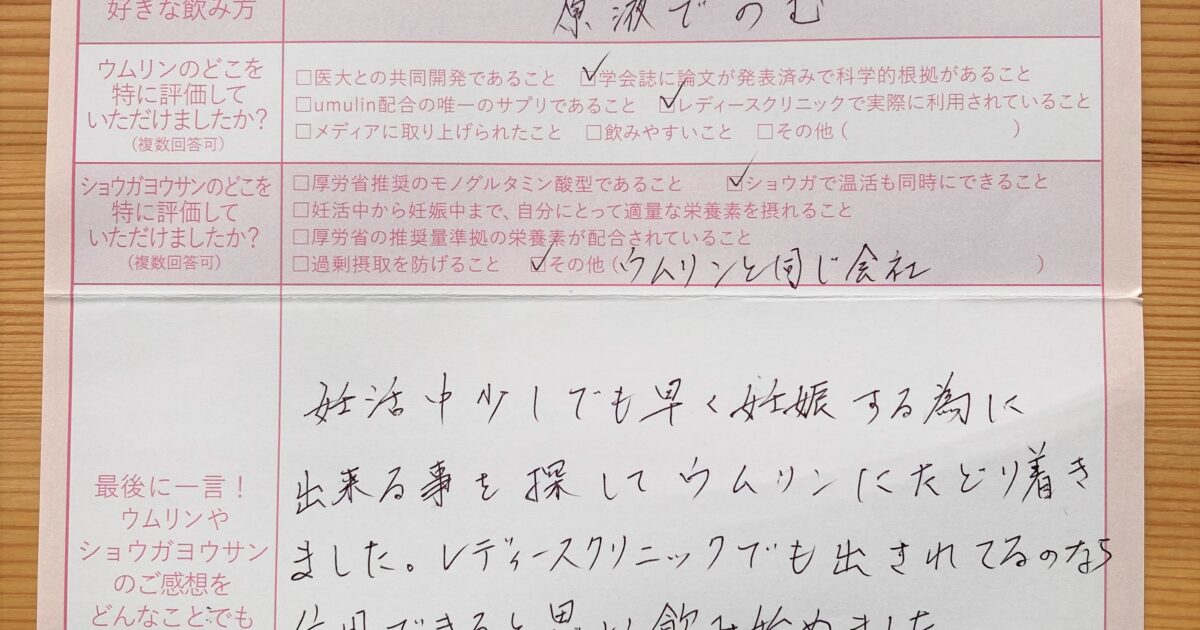 好きな飲み方
原液でのむ
ウムリンのどこを
特に評価して
いただけましたか?
(複数回答可)
□医大との共同開発であること ☑学会誌に論文が発表済みで科学的根拠があること
□umulin配合の唯一のサプリであること ☑レディースクリニックで実際に利用されていること
□メディアに取り上げられたこと □飲みやすいこと □その他( )
ショウガヨウサンのどこを
特に評価して
いただけましたか?
(複数回答可)
□厚労省推奨のモノグルタミン酸型であること ☑ショウガで温活も同時にできること
□妊活中から妊娠中まで、自分にとって適量な栄養素を摂れること
□厚労省の推奨量準拠の栄養素が配合されていること
□過剰摂取を防げること ☑その他(ウムリンと同じ会社 )
最後に一言!
ウムリンや
ショウガヨウサン
のご感想を
どんなことでも
妊活中少しでも早く妊娠する為に
出来る事を探してウムリンにたどり着き
ました。レディースクリニックでも出されてるのなら
信用できると思い飲み始めました